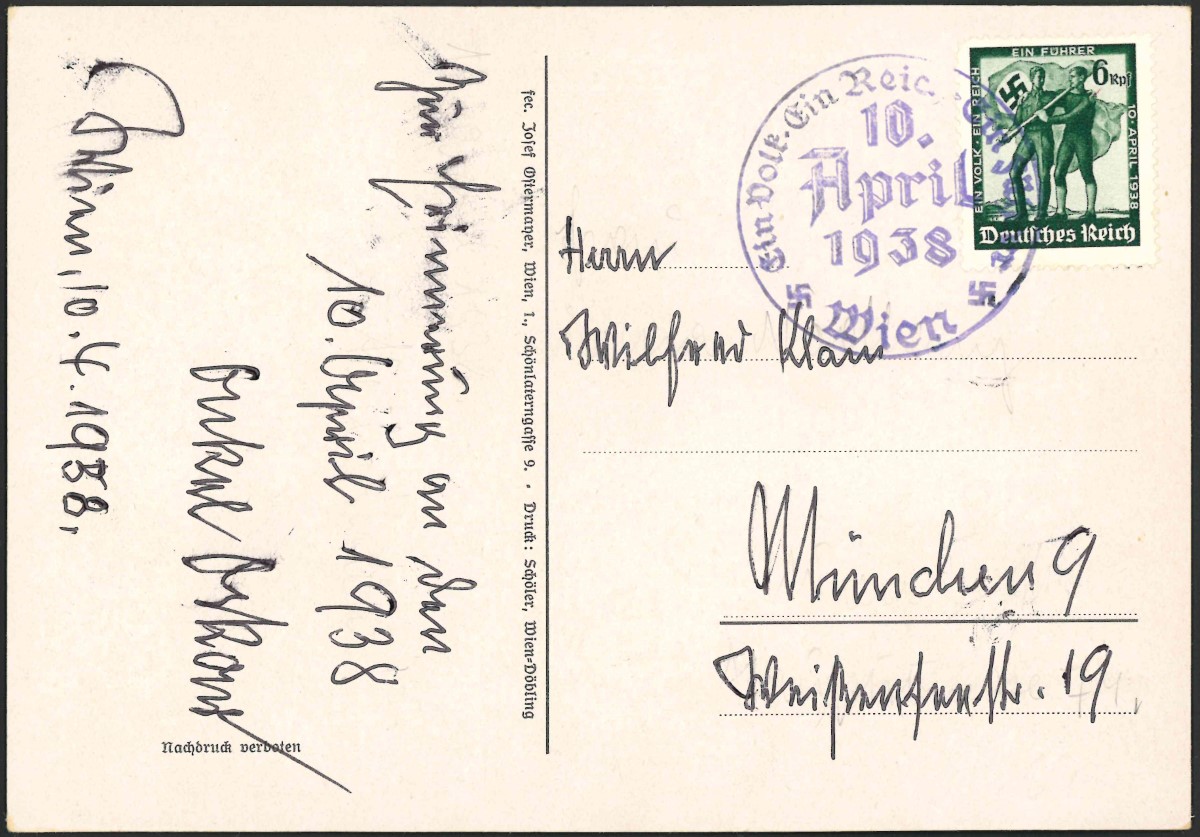 Zur Erinnerung an den
10. April 1938
Onkel Oskar
Wien, 10.4.1938.
Nachdruck verboten
fec. Josef Ostermayer, Wien, 1., Schönlaterngasse 9. · Druck: Schöler, Wien=Döbling
Ein Volk. Ein Reich. Ein Führer
10.
April
1938
Wien
EIN FÜHRER
EIN VOLK · EIN REICH
6 Rpf
10 · APRIL 1938
Deutsches Reich
Herrn
Wilfried
München 9
19